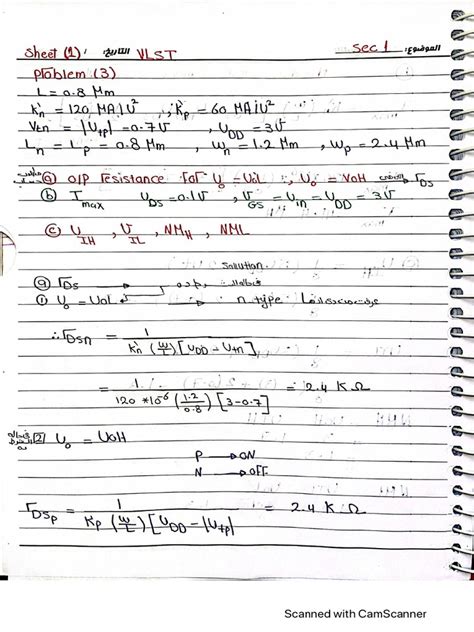 Sheet (1) : التاريخ: VLST Sec 1 الموضوع:
Problem (3)
L = 0.8 Mm
K'n = 120 MA/V² , K'p = 60 MA/V²
Vtn = |Vtp| = 0.7V , VDD = 3V
Ln = Lp = 0.8 Mm , Wn = 1.2 Mm , Wp = 2.4 Mm
ⓐ O/P resistance for Vo = VoL , Vo = VoH → rDS
ⓑ Imax VDS = 0.1V , VGS = Vin = VDD = 3V
ⓒ VIH , VIL , NMH , NML
Solution
ⓐ rDS
① Vo = VoL n type
∴ rDSn = 1 / K'n (W/L) [VDD - Vtn]
= 1 / 120 *10⁻⁶ (1.2/0.8) [3-0.7] = 2.4 K Ω
2 Vo = VoH
P → ON
N → OFF
rDSp = 1 / Kp (W/L) [VDD - |Vtp| = 2.4 K Ω
Scanned with CamScanner